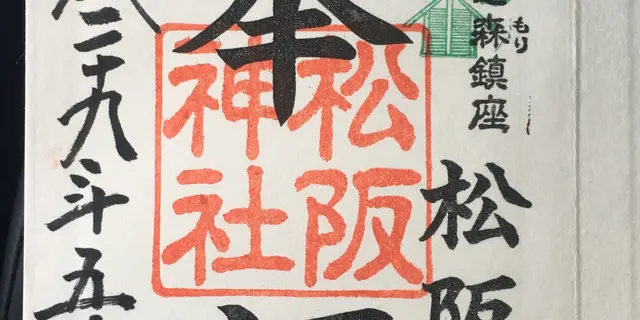 森鎮座
もり
松阪
松阪
神社
二十九年五